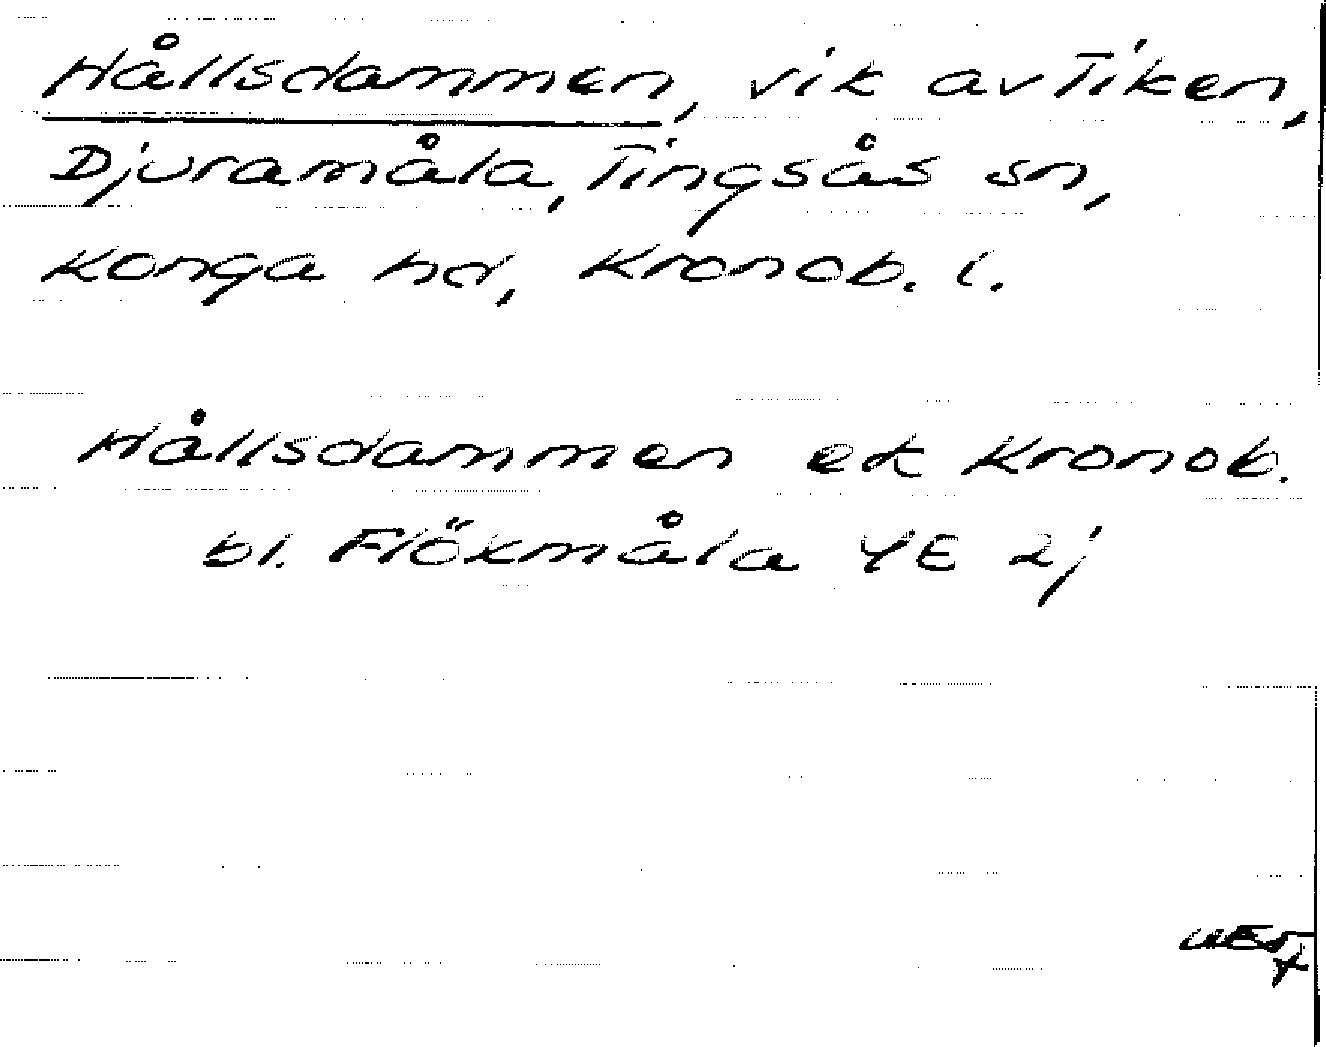 Hållsdammen, vik av Tiken,
Djuramåla, Tingsås sn,
Konga hd, Kronob. l.
Hållsdammen ek Kronob.
bl. Flökmåla 4E 2j